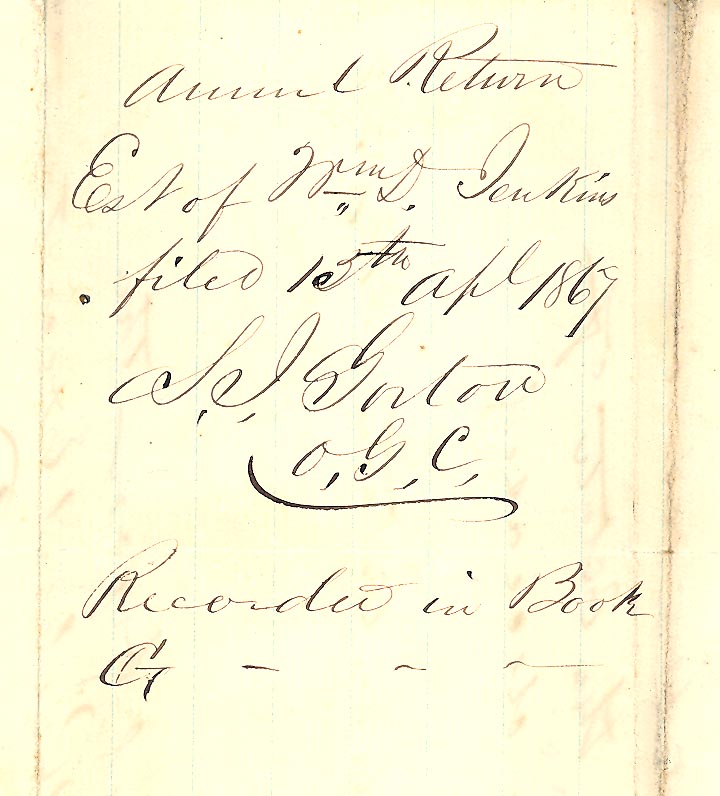 Annul Return
Est of Wm D. Jenkins
filed 15th Apl 1867
S. J. Gorton
O. G. C.
Recorded in Book
G - - -